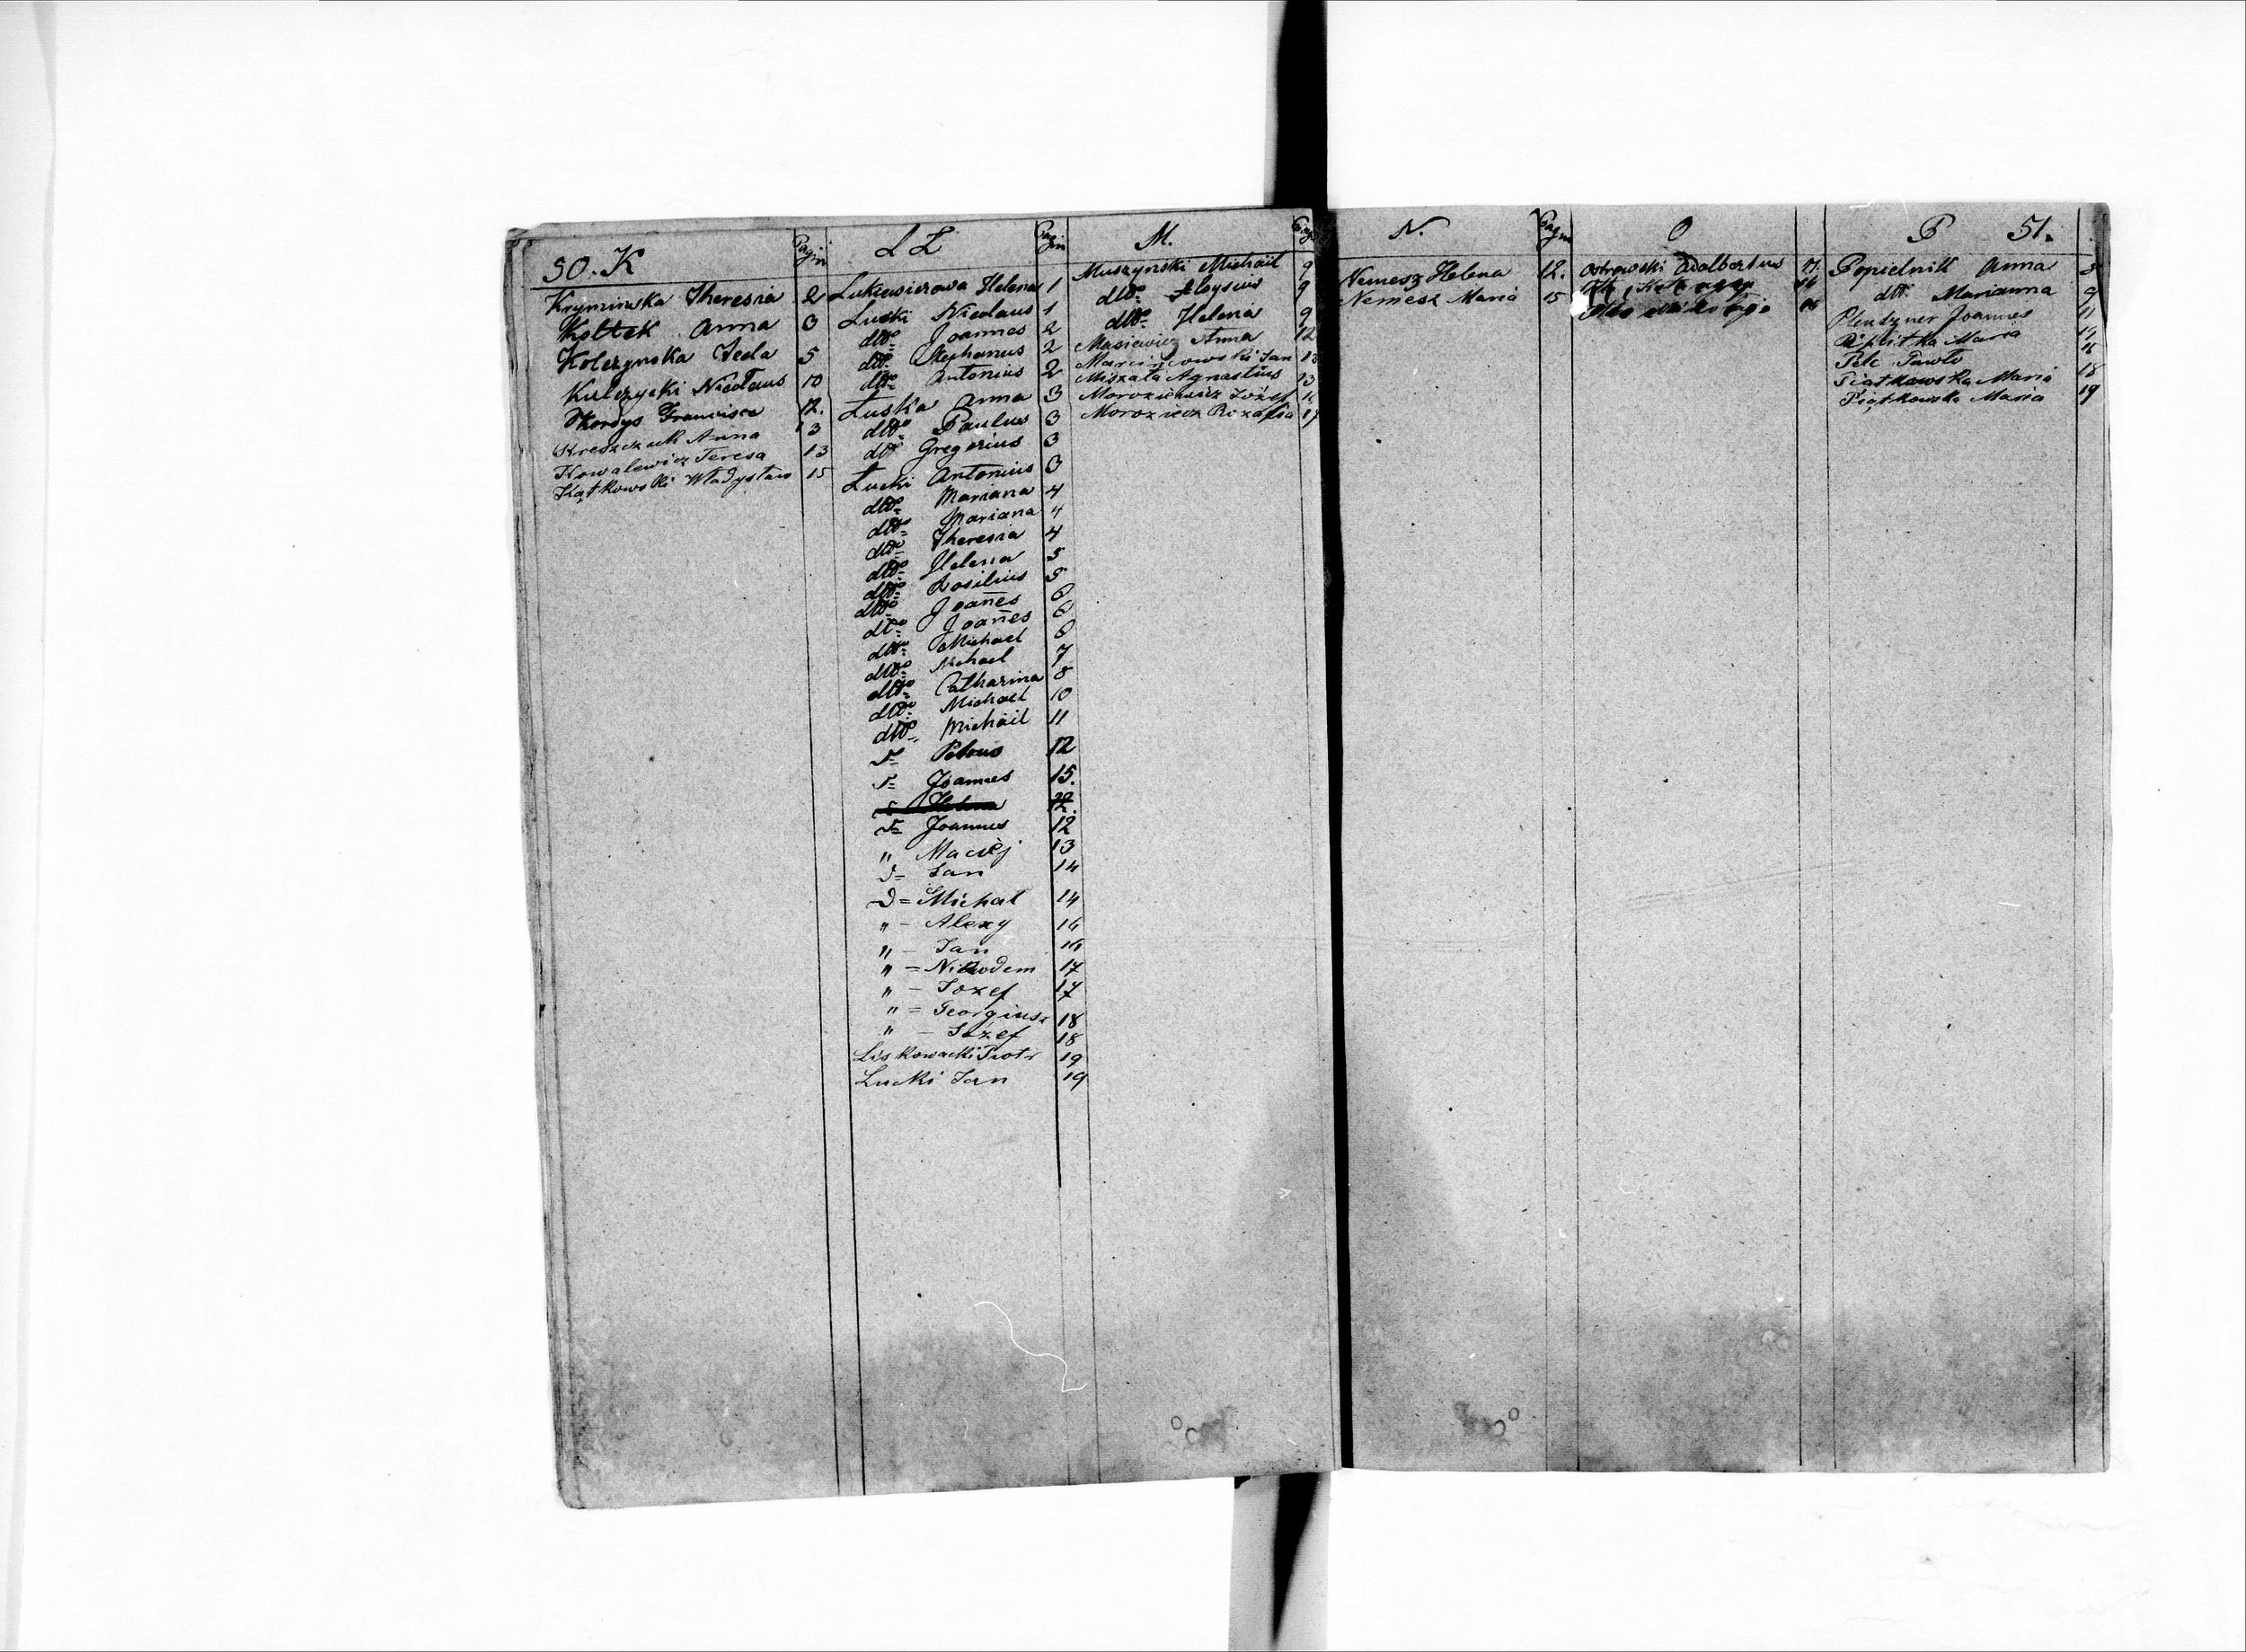 50. K
Pagin
Krymińska Theresia 2
Kołtek Anna 3
Kolczynska Tecla 5
Kulczycki Nicolaus 10
Kordys Francisca 12.
Kreszczuk Anna 13
Kowalewicz Teresa 13
Kątkowski Władysław 15
L Ł
Pagin
Łukasiewiczowa Helena 1
Łucki Nicolaus 1
dtto Joannes 2
dtto Stephanus 2
dtto Antonius 2
Łuska Anna 3
dtto Paulus 3
dtto Gregorius 3
Łucki Antonius 3
dtto Mariana 4
dtto Mariana 4
dtto Theresia 4
dtto Helena 5
dtto Basilius 5
dtto Joañes 6
dtto Joañes 6
dtto Michael 6
dtto Michael 7
dtto Catharina 8
dtto Michael 10
dtto Michail 11
Petrus 12
Joannes 15.
Helena
Joannes 12
" Maciej 13
D= Jan 14
D= Michał 14
" – Alexy 16
" – Jan 16
" = Nikodem 17
" – Jozef 17
" = Georgius 18
" – Józef 18
Liskowacki Piotr 19
Łucki Jan 19
M.
Pagin
Muszynski Michail 9
dtto Aloysius 9
dtto Helena 9
Masiewicz Anna 12
Jan 13
Miszała 13
Józef 16
Rozalia 19
N.
Pagin
Nemesz Helena 12.
Nemesz Maria 15
O
Ostrowski Adalbertus 11.
P 51.
Popielnik Anna 3
dtto Marianna 9
Plentzner Joannes 11
Maria 14
Pelc Pawło 16
Piątkowska Maria 18
Piątkowska Maria 19